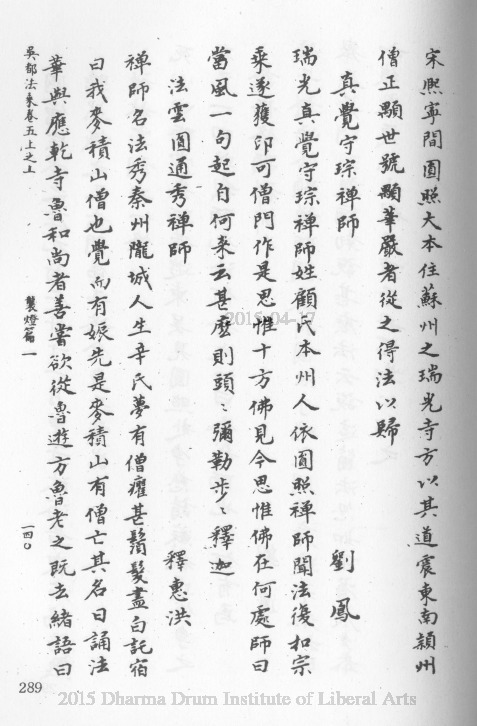 宋熈寧間圓照大本住蘇州之瑞光寺方以其道震東南潁州
僧正顒世號顒華嚴者從之得法以歸
真覺守琮禪師
劉鳳
瑞光真覺守琮禪師姓顧氏本州人依圓照禪師聞法復扣宗
乘遂獲印可僧問作是思惟十方佛見今思惟佛在何處師曰
當風一句起自何来云甚麽則頭〻彌勒步〻釋迦
法雲圓通秀禪師
釋惠洪
禪師名法秀秦州隴城人生辛氏夢有僧癯甚鬚髮盡白託宿
曰我麥積山僧也覺而有娠先是麥積山有僧亡其名日誦法
華與應乾寺魯和尚者善嘗欲從魯遊方魯老之既去緒語曰
吴都法乘卷五上之上
襲燈篇一
一四〇
289
2015-04-17
2015 Dharma Drum Institute of Liberal Arts